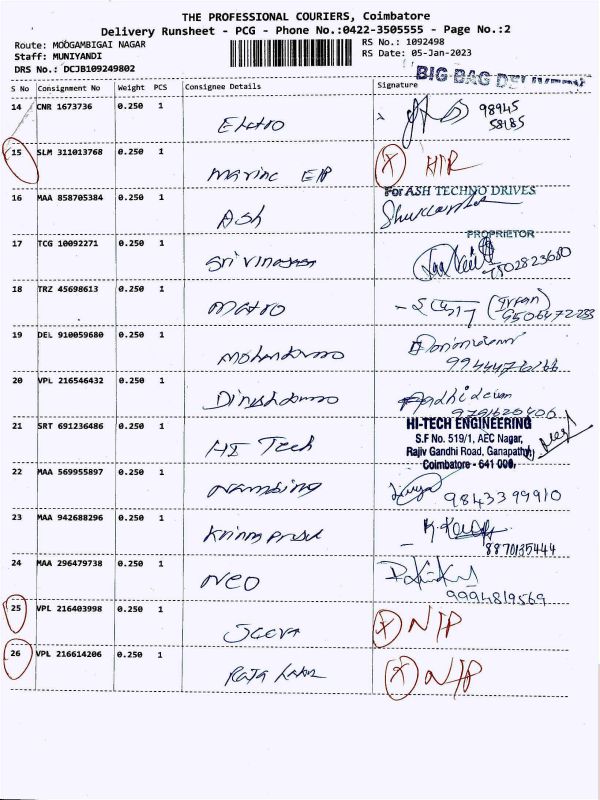 THE PROFESSIONAL COURIERS, Coimbatore
Delivery Runsheet - PCG - Phone No.:0422-3505555 - Page No.:2
Route: MOOGAMBIGAI NAGAR RS No.: 1092498
Staff: MUNIYANDI RS Date: 05-Jan-2023
DRS No.: DCJB109249802
BIG BAG DELIVERY
S No Consignment No Weight PCS Consignee Details Signature
14 CNR 1673736 0.250 1 Electro 98945
58185
15 SLM 311013768 0.250 1 Marine EP X
16 MAA 858705384 0.250 1 Ash For ASH TECHNO DRIVES
PROPRIETOR
17 TCG 10092271 0.250 1 Srivinayaga 7502823680
18 TRZ 45698613 0.250 1 Metro (Irfan)
9506472233
19 DEL 910059680 0.250 1
20 VPL 216546432 0.250 1 Aadhidevan
9791620406
21 SRT 691236486 0.250 1 HI Tech HI-TECH ENGINEERING
S.F No. 519/1, AEC Nagar,
Rajiv Gandhi Road, Ganapathy,
Coimbatore - 641 006.
22 MAA 569955897 0.250 1 9843399910
23 MAA 942688296 0.250 1 8870135444
24 MAA 296479738 0.250 1 Neo
9994819569
25 VPL 216403998 0.250 1 X N/P
26 VPL 216614206 0.250 1 X N/P